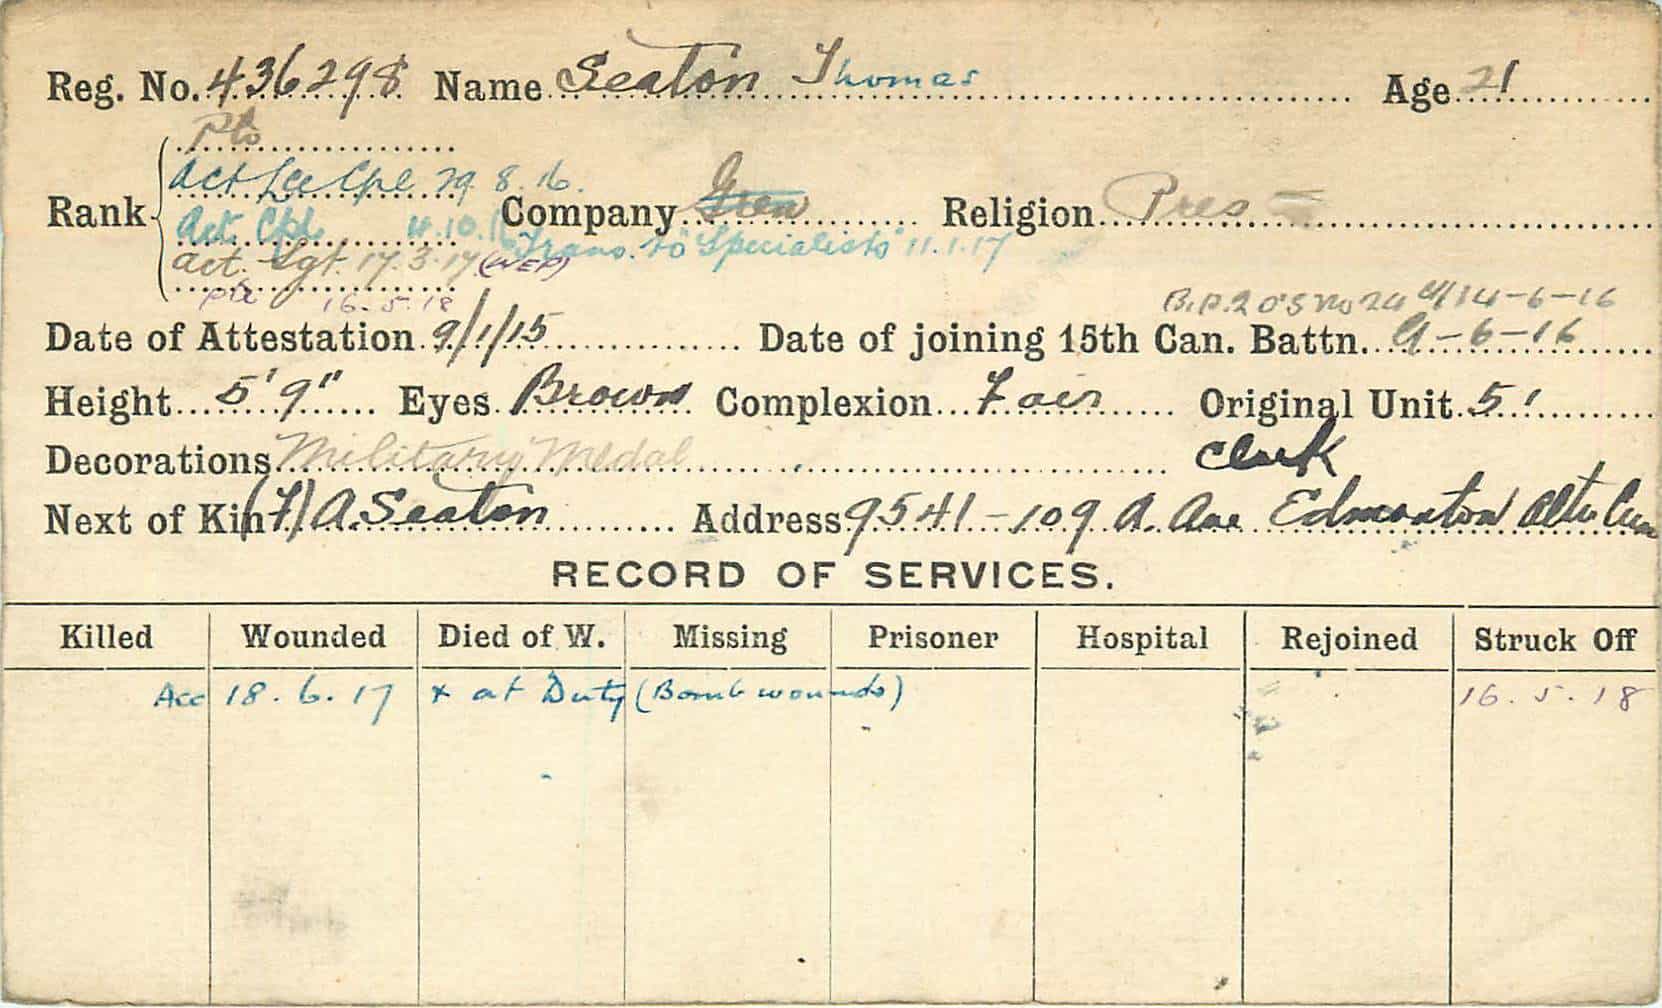 Reg. No. 436298 Name Seaton Thomas Age 21
Pte
Act Lce Cpl 29.8.16.
Rank Act. Cpl. 4.10.16 Company Gren Religion Pres
Trans. to "Specialists" 11.1.17
act. Sgt. 17.3.17 (WEP)
pte 16.5.18
B.P.2 O's No 24 d/14-6-16
Date of Attestation 9/1/15 Date of joining 15th Can. Battn. 9-6-16
Height 5'9" Eyes Brown Complexion Fair Original Unit 51
Decorations Military Medal Clerk
Next of Kin (F) A. Seaton Address 9541-109 A. Ave Edmonton Alta
RECORD OF SERVICES.
Killed Wounded Died of W. Missing Prisoner Hospital Rejoined Struck Off
Acc 18.6.17 + at Duty (Bomb wounds) 16.5.18